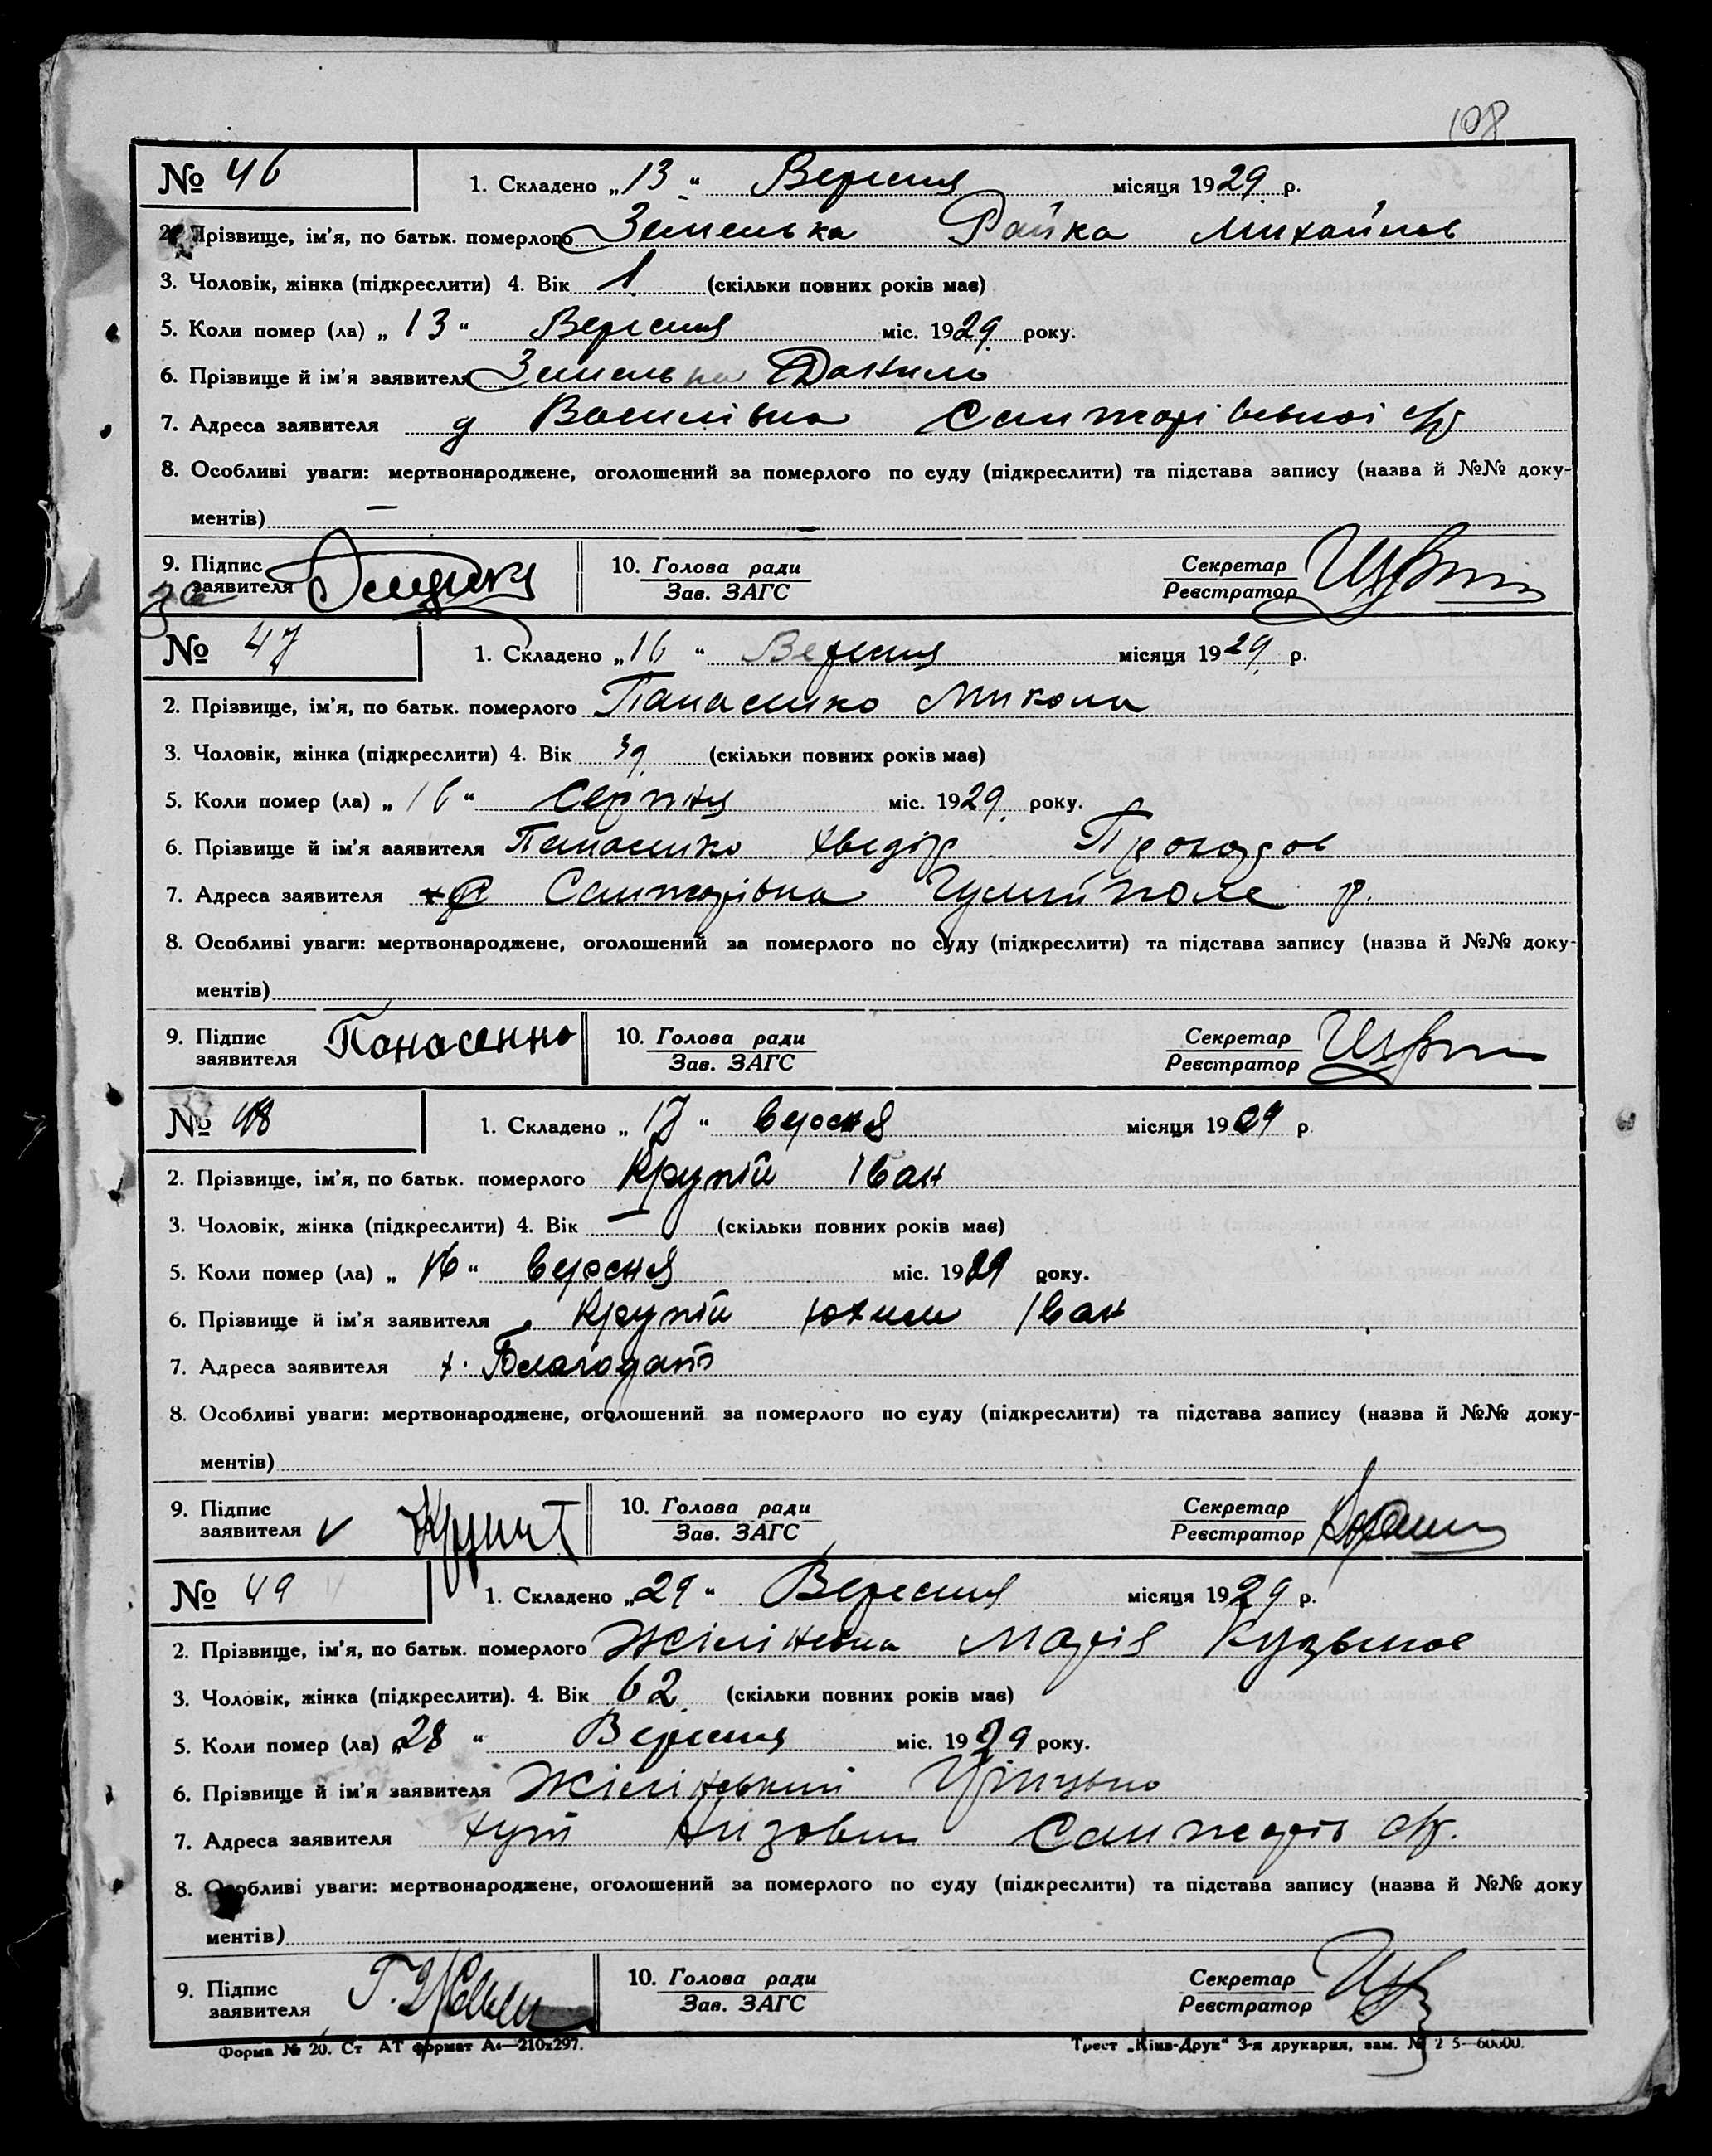 108
№ 46 1. Складено „13“ Вересня місяця 1929 р.
2. Прізвище, ім'я, по батьк. померлого Земелька Райка Михайлов
3. Чоловік, жінка (підкреслити) 4. Вік 1 (скільки повних років має)
5. Коли помер (ла) „13“ Вересня міс. 1929 року.
6. Прізвище й ім'я заявителя Земелька Данило
7. Адреса заявителя Василівка Санжарівської с/р
8. Особливі уваги: мертвонароджене, оголошений за померлого по суду (підкреслити) та підстава запису (назва й №№ доку-
ментів) — —
9. Підпис заявителя за 10. Голова ради Зав. ЗАГС Секретар Реєстратор
№ 47 1. Складено „16“ Вересня місяця 1929 р.
2. Прізвище, ім'я, по батьк. померлого Панасенко Микола
3. Чоловік, жінка (підкреслити) 4. Вік (скільки повних років має)
5. Коли помер (ла) „16“ Серпня міс. 1929 року.
6. Прізвище й ім'я заявителя Панасенко Хведір
7. Адреса заявителя Санжарівка Гуляйполе р.
8. Особливі уваги: мертвонароджене, оголошений за померлого по суду (підкреслити) та підстава запису (назва й №№ доку-
ментів)
9. Підпис заявителя Панасенко 10. Голова ради Зав. ЗАГС Секретар Реєстратор
№ 48 1. Складено „17“ вересня місяця 1929 р.
2. Прізвище, ім'я, по батьк. померлого Крупій Іван
3. Чоловік, жінка (підкреслити) 4. Вік — (скільки повних років має)
5. Коли помер (ла) „16“ вересня міс. 1929 року.
6. Прізвище й ім'я заявителя Крупій Юхим Іван
7. Адреса заявителя х. Благодать
8. Особливі уваги: мертвонароджене, оголошений за померлого по суду (підкреслити) та підстава запису (назва й №№ доку-
ментів)
9. Підпис заявителя 10. Голова ради Зав. ЗАГС Секретар Реєстратор
№ 49 1. Складено „29“ Вересня місяця 1929 р.
2. Прізвище, ім'я, по батьк. померлого Марія Кузьмов
3. Чоловік, жінка (підкреслити). 4. Вік 62 (скільки повних років має)
5. Коли помер (ла) „28“ Вересня міс. 1929 року.
6. Прізвище й ім'я заявителя
7. Адреса заявителя хут Низовий Санжарів с/р.
8. Особливі уваги: мертвонароджене, оголошений за померлого по суду (підкреслити) та підстава запису (назва й №№ доку
ментів)
9. Підпис заявителя 10. Голова ради Зав. ЗАГС Секретар Реєстратор
Форма № 20. Ст АТ формат А4—210x297. Трест „Київ-Друк“ 3-я друкарня, зам. №